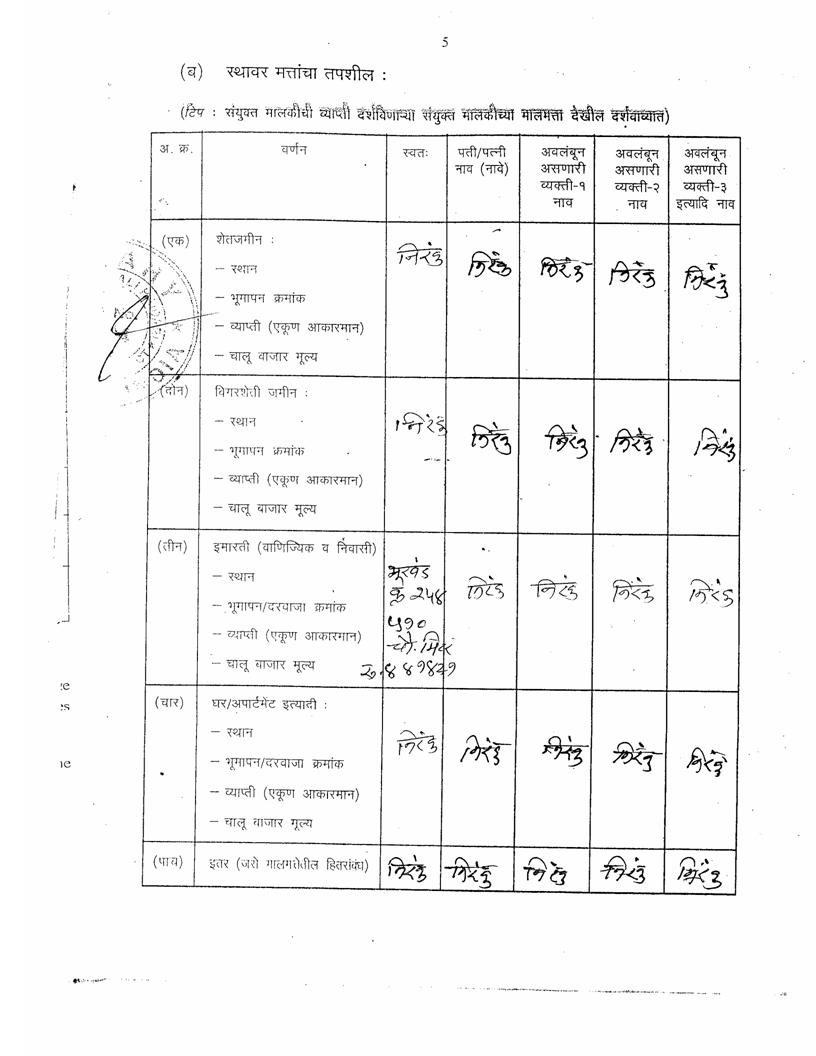 5
(ब) स्थावर मत्तांचा तपशील :
(टिप : संयुक्त मालकीची व्याप्ती दर्शविणाऱ्या संयुक्त मालकीच्या मालमत्ता देखील दर्शवाव्यात)
अ. क्र. वर्णन स्वतः पती/पत्नी अवलंबून अवलंबून अवलंबून
नाव (नावे) असणारी असणारी असणारी
व्यक्ती-१ व्यक्ती-२ व्यक्ती-३
नाव नाव इत्यादि नाव
(एक) शेतजमीन : निरंक निरंक निरंक निरंक निरंक
– स्थान
– भूमापन क्रमांक
– व्याप्ती (एकूण आकारमान)
– चालू बाजार मूल्य
(दोन) बिगरशेती जमीन :
– स्थान निरंक निरंक निरंक निरंक निरंक
– भूमापन क्रमांक
– व्याप्ती (एकूण आकारमान)
– चालू बाजार मूल्य
(तीन) इमारती (वाणिज्यिक व निवासी)
– स्थान भूखंड निरंक निरंक निरंक निरंक
– भूमापन/दरवाजा क्रमांक क्र २४४
५१०
– व्याप्ती (एकूण आकारमान) चौ. मिटर
– चालू बाजार मूल्य
(चार) घर/अपार्टमेंट इत्यादी :
– स्थान निरंक निरंक निरंक निरंक निरंक
– भूमापन/दरवाजा क्रमांक
– व्याप्ती (एकूण आकारमान)
– चालू बाजार मूल्य
(पाच) इतर (जसे मालमत्तेतील हितसंबंध) निरंक निरंक निरंक निरंक निरंक